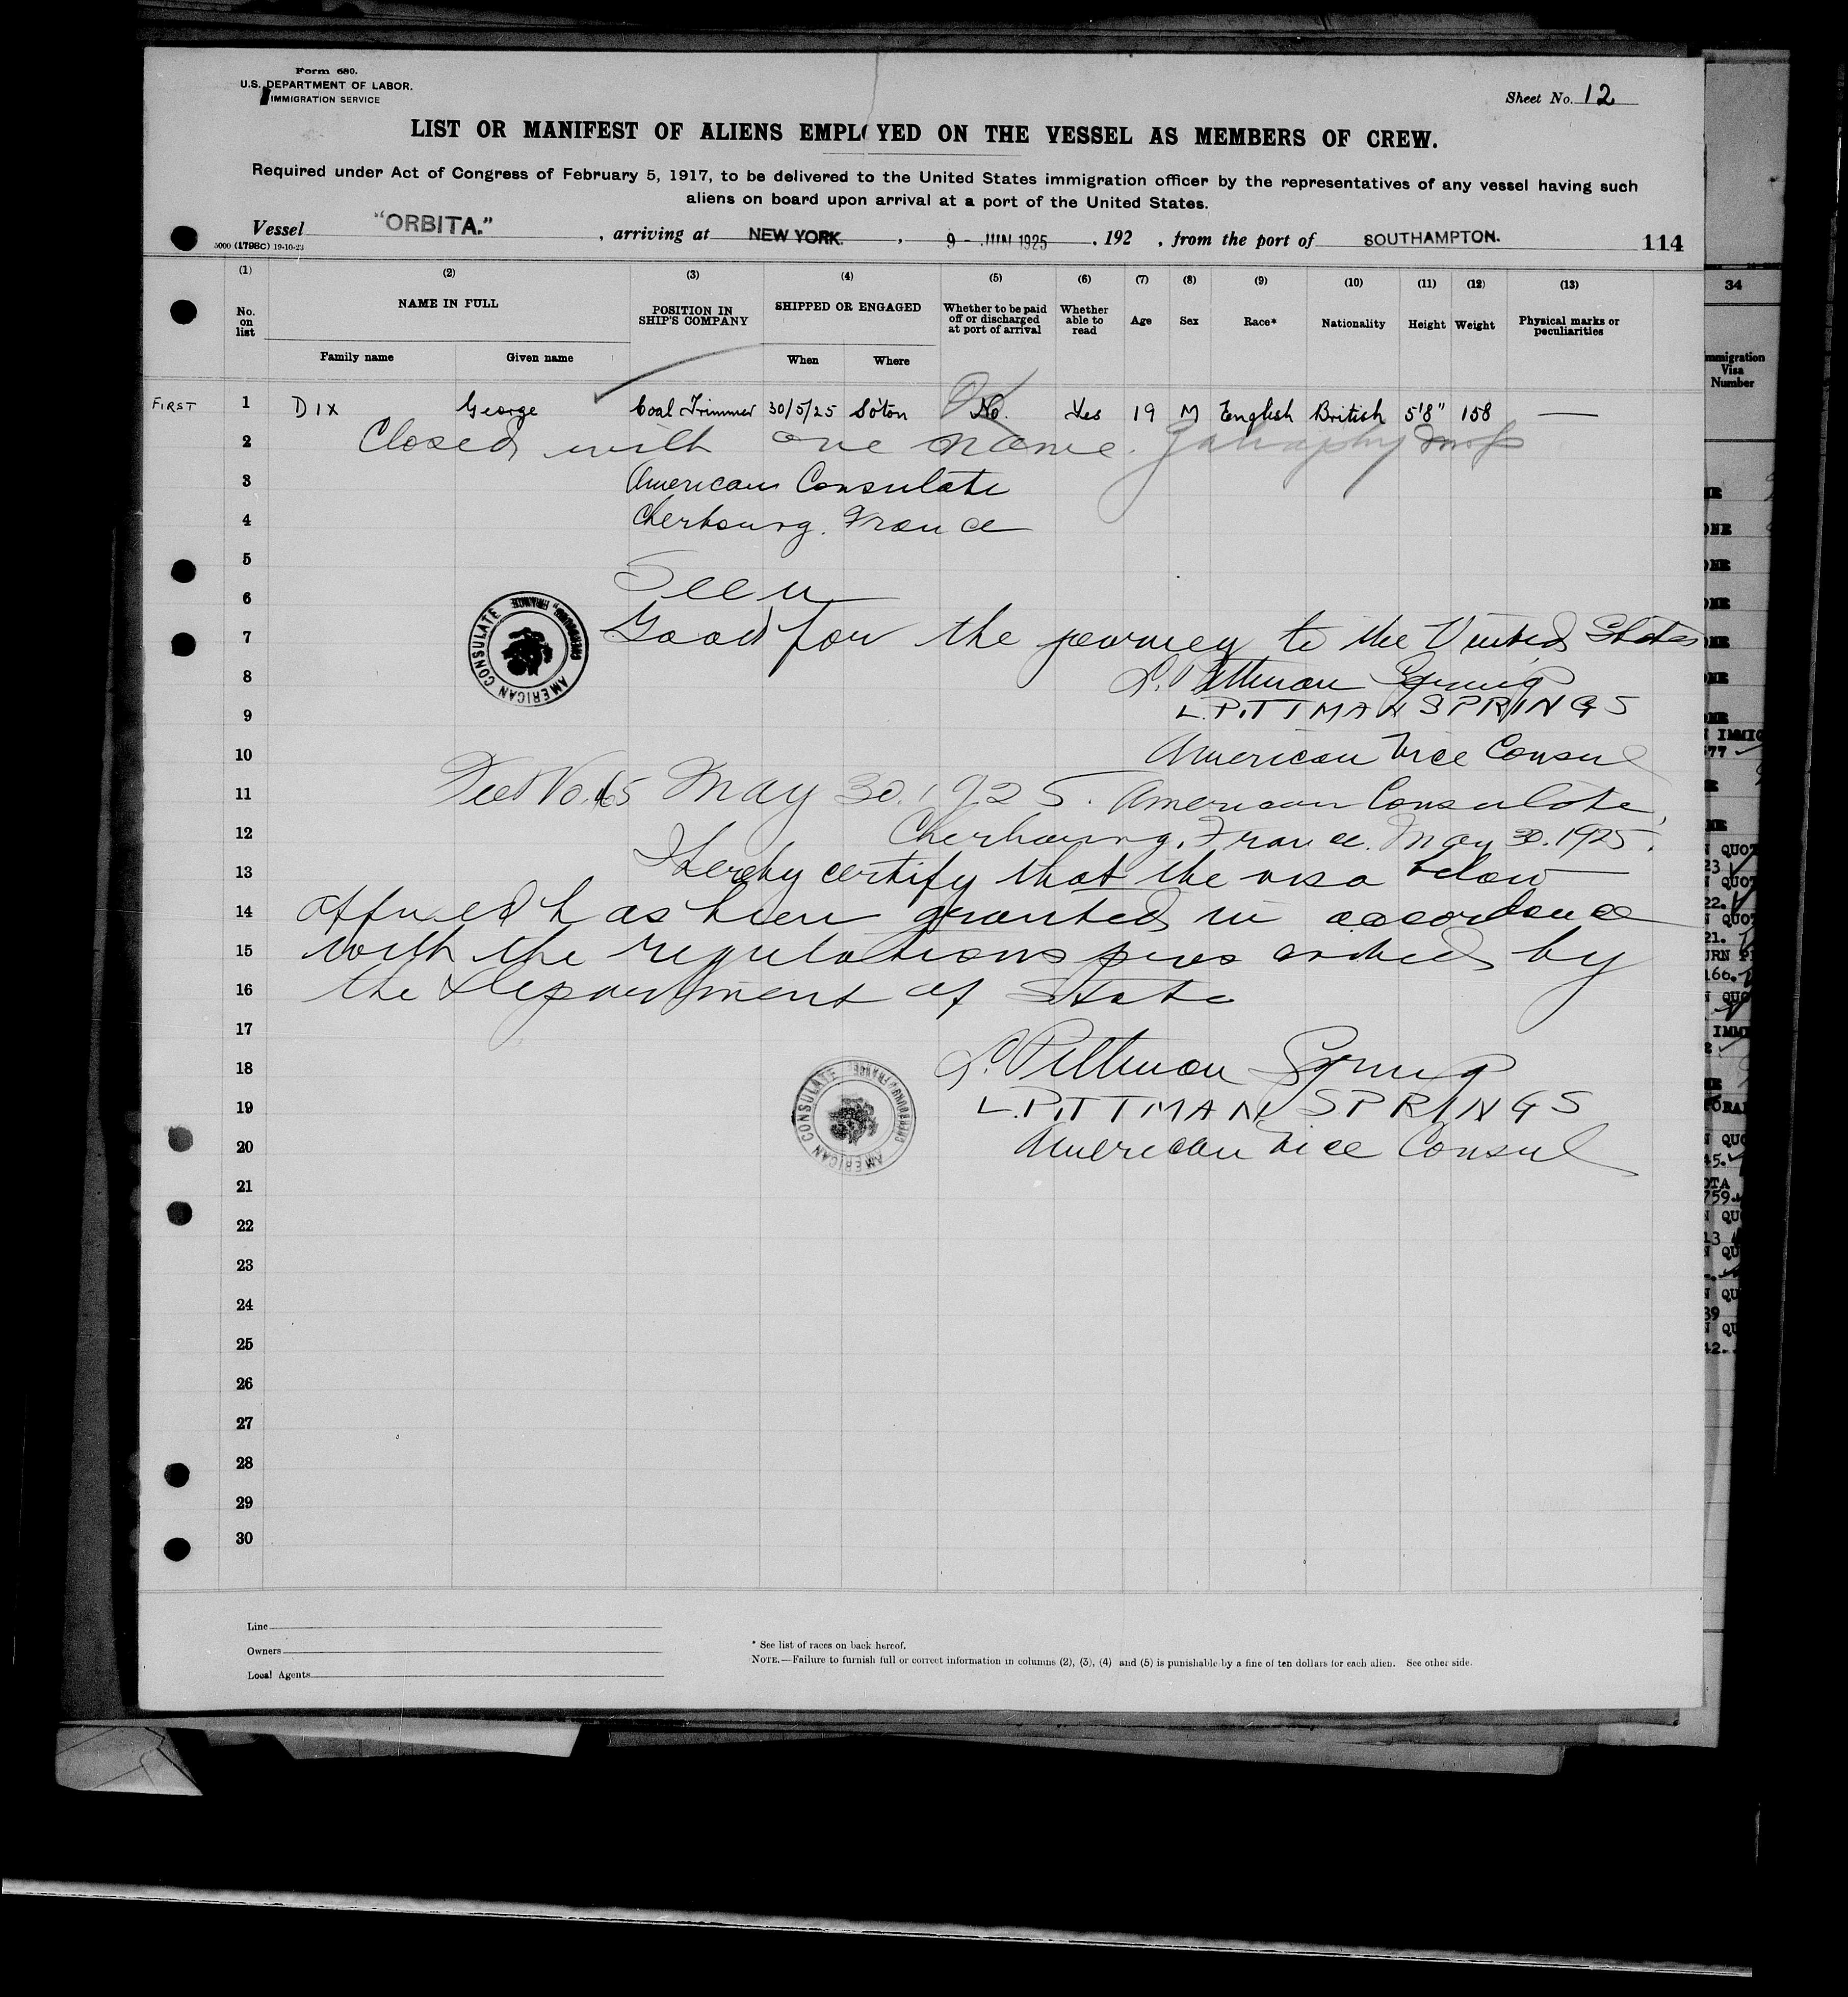 Form 680.
U.S. DEPARTMENT OF LABOR.
IMMIGRATION SERVICE
Sheet No. 12
LIST OR MANIFEST OF ALIENS EMPLOYED ON THE VESSEL AS MEMBERS OF CREW.
Required under Act of Congress of February 5, 1917, to be delivered to the United States immigration officer by the representatives of any vessel having such
aliens on board upon arrival at a port of the United States.
Vessel "ORBITA." , arriving at NEW YORK. , 9 - JUN 1925 , 192 , from the port of SOUTHAMPTON.
5000 (1798C) 19-10-23
114
(1) (2) (3) (4) (5) (6) (7) (8) (9) (10) (11) (12) (13)
No. on list NAME IN FULL POSITION IN SHIP'S COMPANY SHIPPED OR ENGAGED Whether to be paid off or discharged at port of arrival Whether able to read Age Sex Race* Nationality Height Weight Physical marks or peculiarities
Family name Given name When Where
FIRST 1 DIX George Coal Trimmer 30/5/25 So'ton No. Yes 19 M English British 5'8" 158 —
2 Closed with one name.
3 American Consulate
4 Cherbourg. France
5
6 Seen
7 Good for the journey to the United States
AMERICAN CONSULATE CHERBOURG, FRANCE
8 L. Pittman Springs
9 L. PITTMAN SPRINGS
10 American Vice Consul
11 May 30. 1925. American Consulate,
12 Cherbourg, France. May 30. 1925.
13 I hereby certify that the visa below
14 affixed has been granted in accordance
15 with the regulations prescribed by
16 the Department of State
17
18 L. Pittman Springs
19 L. PITTMAN SPRINGS
AMERICAN CONSULATE CHERBOURG, FRANCE
20 American Vice Consul
21
22
23
24
25
26
27
28
29
30
Line
Owners
Local Agents
* See list of races on back hereof.
NOTE.—Failure to furnish full or correct information in columns (2), (3), (4) and (5) is punishable by a fine of ten dollars for each alien. See other side.
34
Immigration
Visa
Number